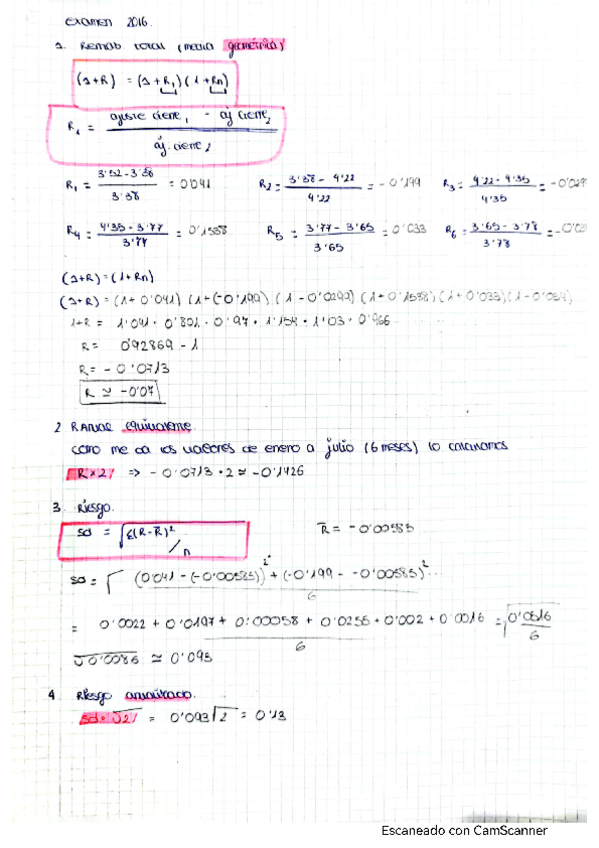 examen 2016.
1. Rentab total (media geométrica)
(1+R) = (1+R₁)(1+Rn)
R₁ = ajuste cierre₁ - aj cierre₂ / aj. cierre₂
R₁ = 3'52-3'38 / 3'38 = 0'041 R₂ = 3'38-4'22 / 4'22 = -0'199 R₃ = 4'22-4'35 / 4'35 = -0'029
R₄ = 4'35-3'77 / 3'77 = 0'1538 R₅ = 3'77-3'65 / 3'65 = 0'033 R₆ = 3'65-3'78 / 3'78 = -0'03
(1+R) = (1+Rn)
(1+R) = (1+0'041) (1+(-0'199) (1-0'0299) (1+0'1538) (1+0'033) (1-0'034)
1+R = 1'041 · 0'801 · 0'97 · 1'154 · 1'03 · 0'966
R = 0'92869 - 1
R = -0'0713
R ≃ -0'07
2 R anual equivalente
como me da los valores de enero a julio (6 meses) lo calculamos
R×2 => -0'0713 · 2 ≃ -0'1426
3. Riesgo.
sd = √Σ(R-R̄)² / n R̄ = -0'00585
sd = √ (0'041 - (-0'00585))² + (-0'199 - -0'00585)² ... / 6
= 0'0022 + 0'0197 + 0'00058 + 0'0255 + 0'002 + 0'0016 / 6 = √0'0516 / 6
√0'0086 ≃ 0'093
4. Riesgo anualizado.
sd·√2 = 0'093√2 = 0'13
Escaneado con CamScanner